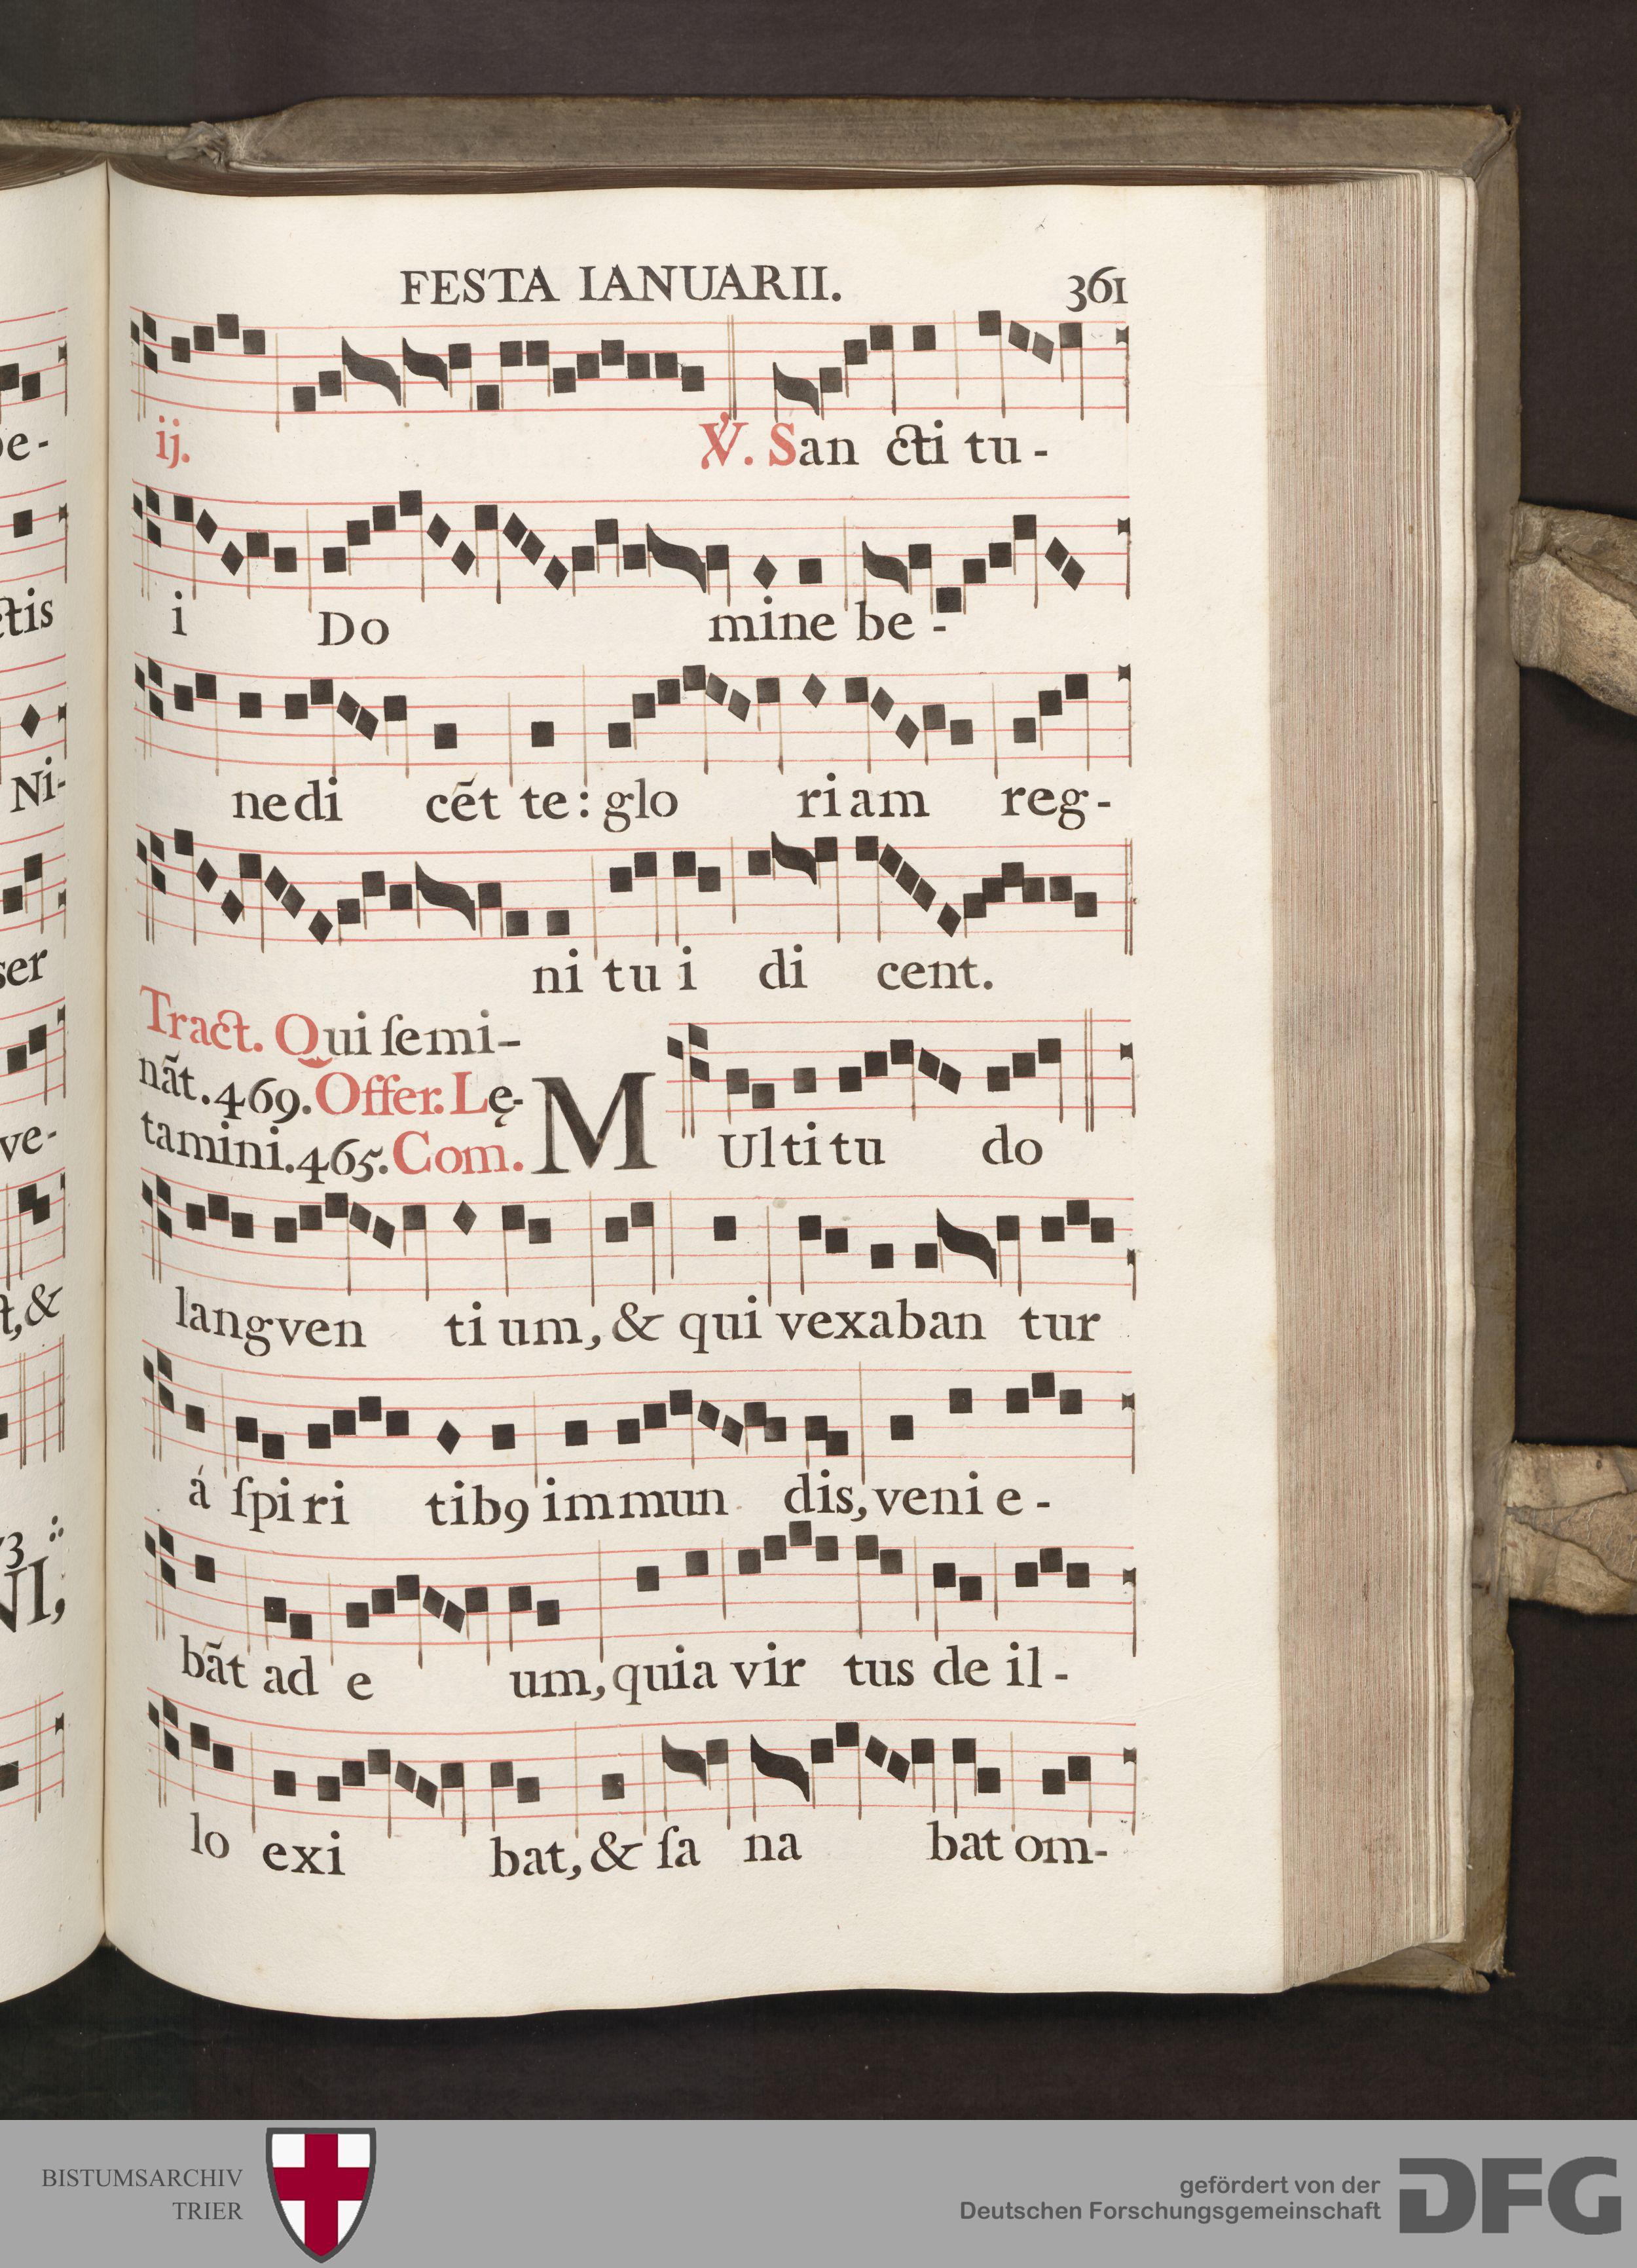 FESTA IANUARII. 361
ij. ℣. San cti tu-
i Do mine be-
nedi cēt te: glo riam reg-
ni tu i di cent.
Tract. Qui ſemi-
nāt. 469. Offer. Lę-
tamini. 465. Com. M Ulti tu do
langven ti um, & qui vexaban tur
á ſpi ri tibꝰ immun dis, veni e-
bāt ad e um, quia vir tus de il-
lo exi bat, & ſa na bat om-
be-
ctis
Ni-
ser
ve-
t, &
73
NI,
BISTUMSARCHIV
TRIER
gefördert von der
Deutschen Forschungsgemeinschaft
DFG